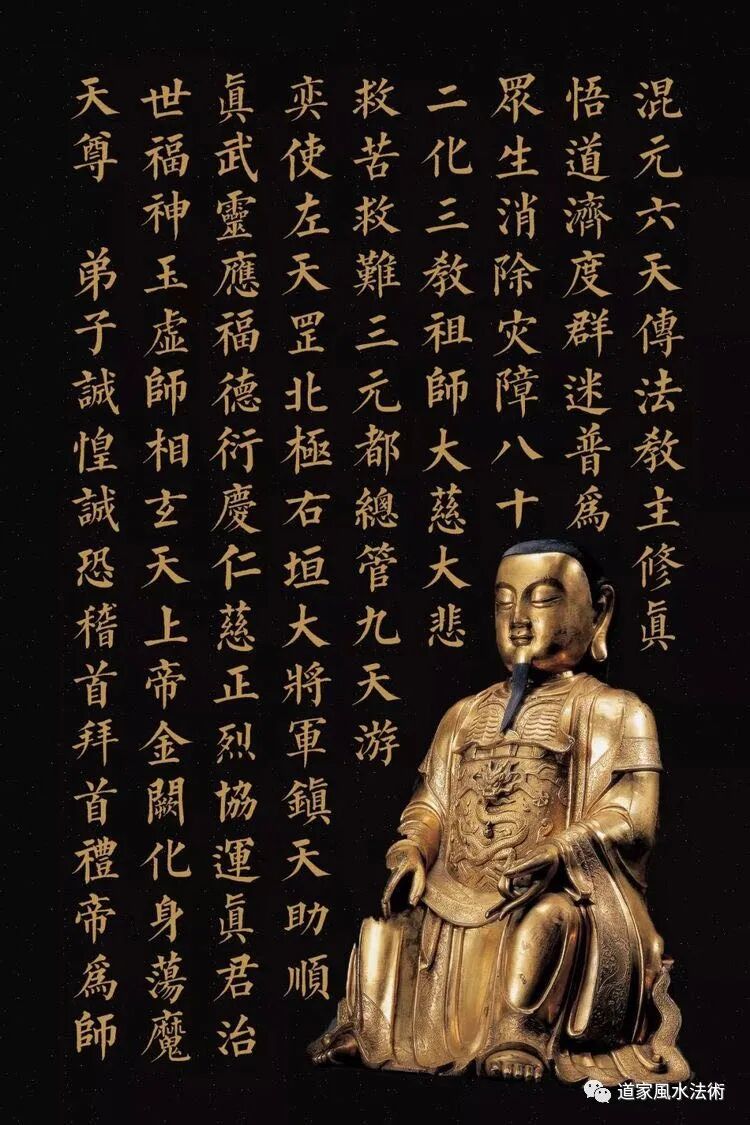 混元六天傳法敎主修眞
悟道濟度群迷普爲
眾生消除灾障八十
二化三敎祖師大慈大悲
救苦救難三元都總管九天游
奕使左天罡北極右垣大將軍鎮天助順
眞武靈應福德衍慶仁慈正烈協運眞君治
世福神玉虛師相玄天上帝金闕化身蕩魔
天尊　弟子誠惶誠恐稽首拜首禮帝爲師
道家風水法術